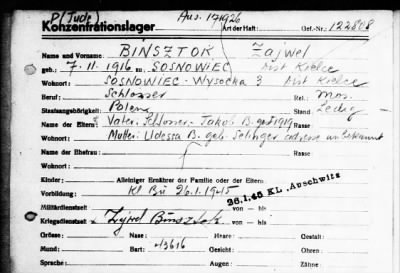 P/Jude Aus. 171926
Konzentrationslager Art der Haft: Gef.-Nr.: 122808
Name und Vorname: BINSZTOK Zajwel
geb.: 7.11.1916 zu: SOSNOWIEC Dist Kielce
Wohnort: SOSNOWIEC - Wysocka 3 Dist Kielce
Beruf: Schlosser Rel.: mos.
Staatsangehörigkeit: Polen Stand: Ledig
Name der Eltern: Vater: Schlosser - Jakob B. gest 1919 Rasse
Wohnort: Mutter: Udessa B. geb. Selinger adresse unbekannt
Name der Ehefrau: Rasse
Wohnort:
Kinder: Alleiniger Ernährer der Familie oder der Eltern:
Vorbildung: Kl Bu 26.1.1945
26.1.45 KL. Auschwitz
Militärdienstzeit: von — bis
Kriegsdienstzeit: x Zajwel Binsztok von — bis
Grösse: Nase: Haare: Gestalt:
Mund: Bart: 43616 Gesicht: Ohren:
Sprache: Augen: Zähne: